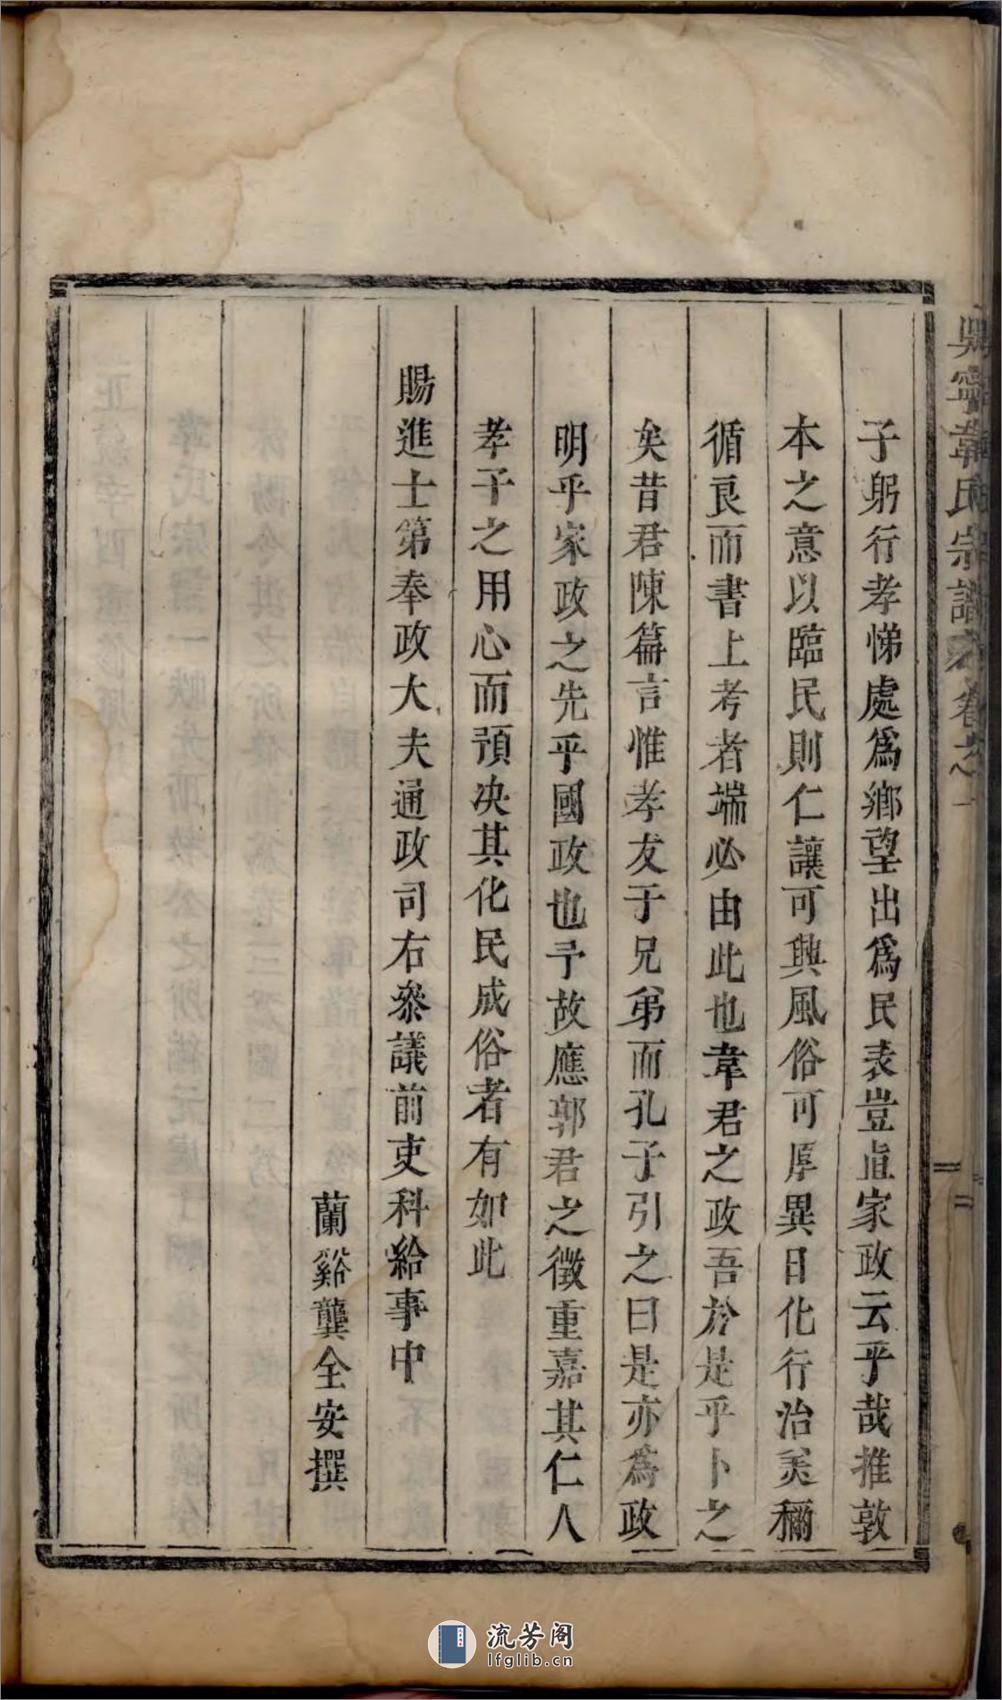 吳寧韋氏宗譜卷之一
子躬行孝悌處爲鄉望出爲民表豈直家政云乎哉推敦
本之意以臨民則仁讓可興風俗可厚異日化行治美稱
循良而書上考者端必由此也韋君之政吾於是乎卜之
矣昔君陳篇言惟孝友于兄弟而孔子引之曰是亦爲政
明乎家政之先乎國政也予故應郭君之徵重嘉其仁人
孝子之用心而預决其化民成俗者有如此
賜進士第奉政大夫通政司右叅議前吏科給事中
蘭谿龔全安撰
流芳阁
lfglib.cn